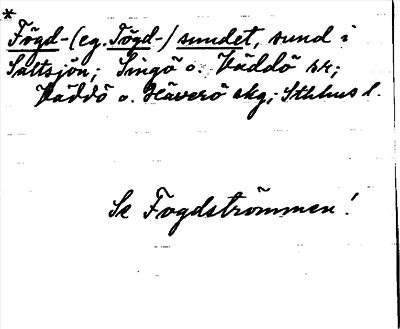 *
Fögd-(eg. Tögd-) sundet, sund i
Saltsjön; Singö o. Väddö sk;
Väddö o. Häverö skg; Sthlms l.
Se Fogdströmmen!